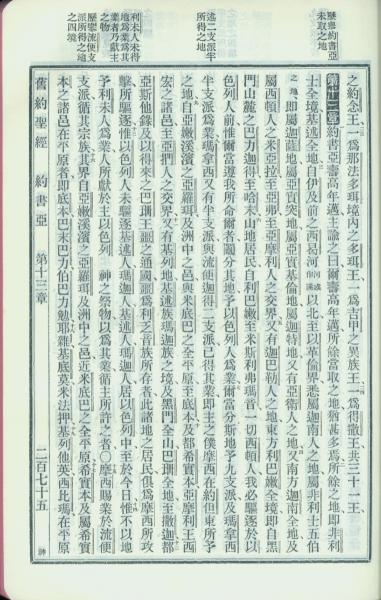 歷舉約書亞
未取之地
述二支派半
所得之地
利未人未得
地爲業爲其
業者乃獻主
之物
歷舉流便支
派所得之地
之四境
之約念王一爲那法多珥境內之多珥王一爲吉甲之異族王一爲得撒王共三十一王
第十三章 約書亞壽高年邁主諭之曰爾壽高年邁所餘當取之地猶甚多焉所餘之地即非利
士全境基述全地自伊及前之西曷河以北至以革倫界悉屬迦南人之地屬非利士五伯
之地即屬迦薩地屬亞實突地屬亞實基倫地屬迦特地又有亞衛人之地又南方迦南全地及
屬西頓人之米亞拉至亞弗至亞摩利人之交界又有迦巴勒人之地東方利巴嫩全境即自黑
門山麓之巴力迦得至哈末山地居民自利巴嫩至米斯利弗瑪音一切西頓人我必驅逐於以
色列人前惟爾當遵我所命爾者鬮分其地予以色列人爲業爾當分斯地予九支派及瑪拿西
半支派爲業瑪拿西又有半支派與流便迦得二支派已得其業即主之僕摩西在約但東所予
之地自亞嫩溪濱之亞羅珥及洲中之邑與米底巴之全平原至底本及都希實本亞摩利王西
宏之諸邑至亞捫人之交界又有基列地基述族瑪迦族之境及黑門全山巴珊全地至撒迦都
亞斯他錄及以得來之巴珊王噩之通國噩爲利乏音族所存者此諸地之居民俱爲摩西所攻
擊所驅逐惟以色列人未驅逐基述人瑪迦人基述人瑪迦人居以色列中至於今日惟不以地
予利未人爲業人所獻於主以色列 神之祭物以爲其業循主所許之者○摩西賜業於流便
支派循其宗族其界自亞嫩溪濱之亞羅珥及洲中之邑近米底巴之全平原希實本及屬希實
本之諸邑在平原者即底本巴末巴力伯巴力勉耶雜基底莫米法押基列他英西比瑪在平原
舊約聖經 約書亞 第十三章 二百七十五